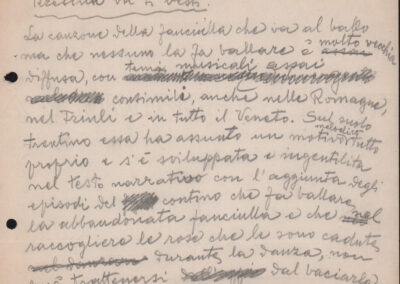 va ti vesti
La canzone della fanciulla che va al ballo
ma che nessuno la fa ballare è assai molto vecchia
diffusa, con temi musicali assai
consimili, anche nelle Romagne,
nel Friuli e in tutto il Veneto. Sul suolo
trentino essa ha assunto un motivo melodico tutto
proprio e s'è sviluppata e ingentilita
nel testo narrativo con l'aggiunta degli
episodi del contino che fa ballare
la abbandonata fanciulla e che nel
raccogliere le rose che le sono cadute
durante la danza, non
trattenersi dal baciarla